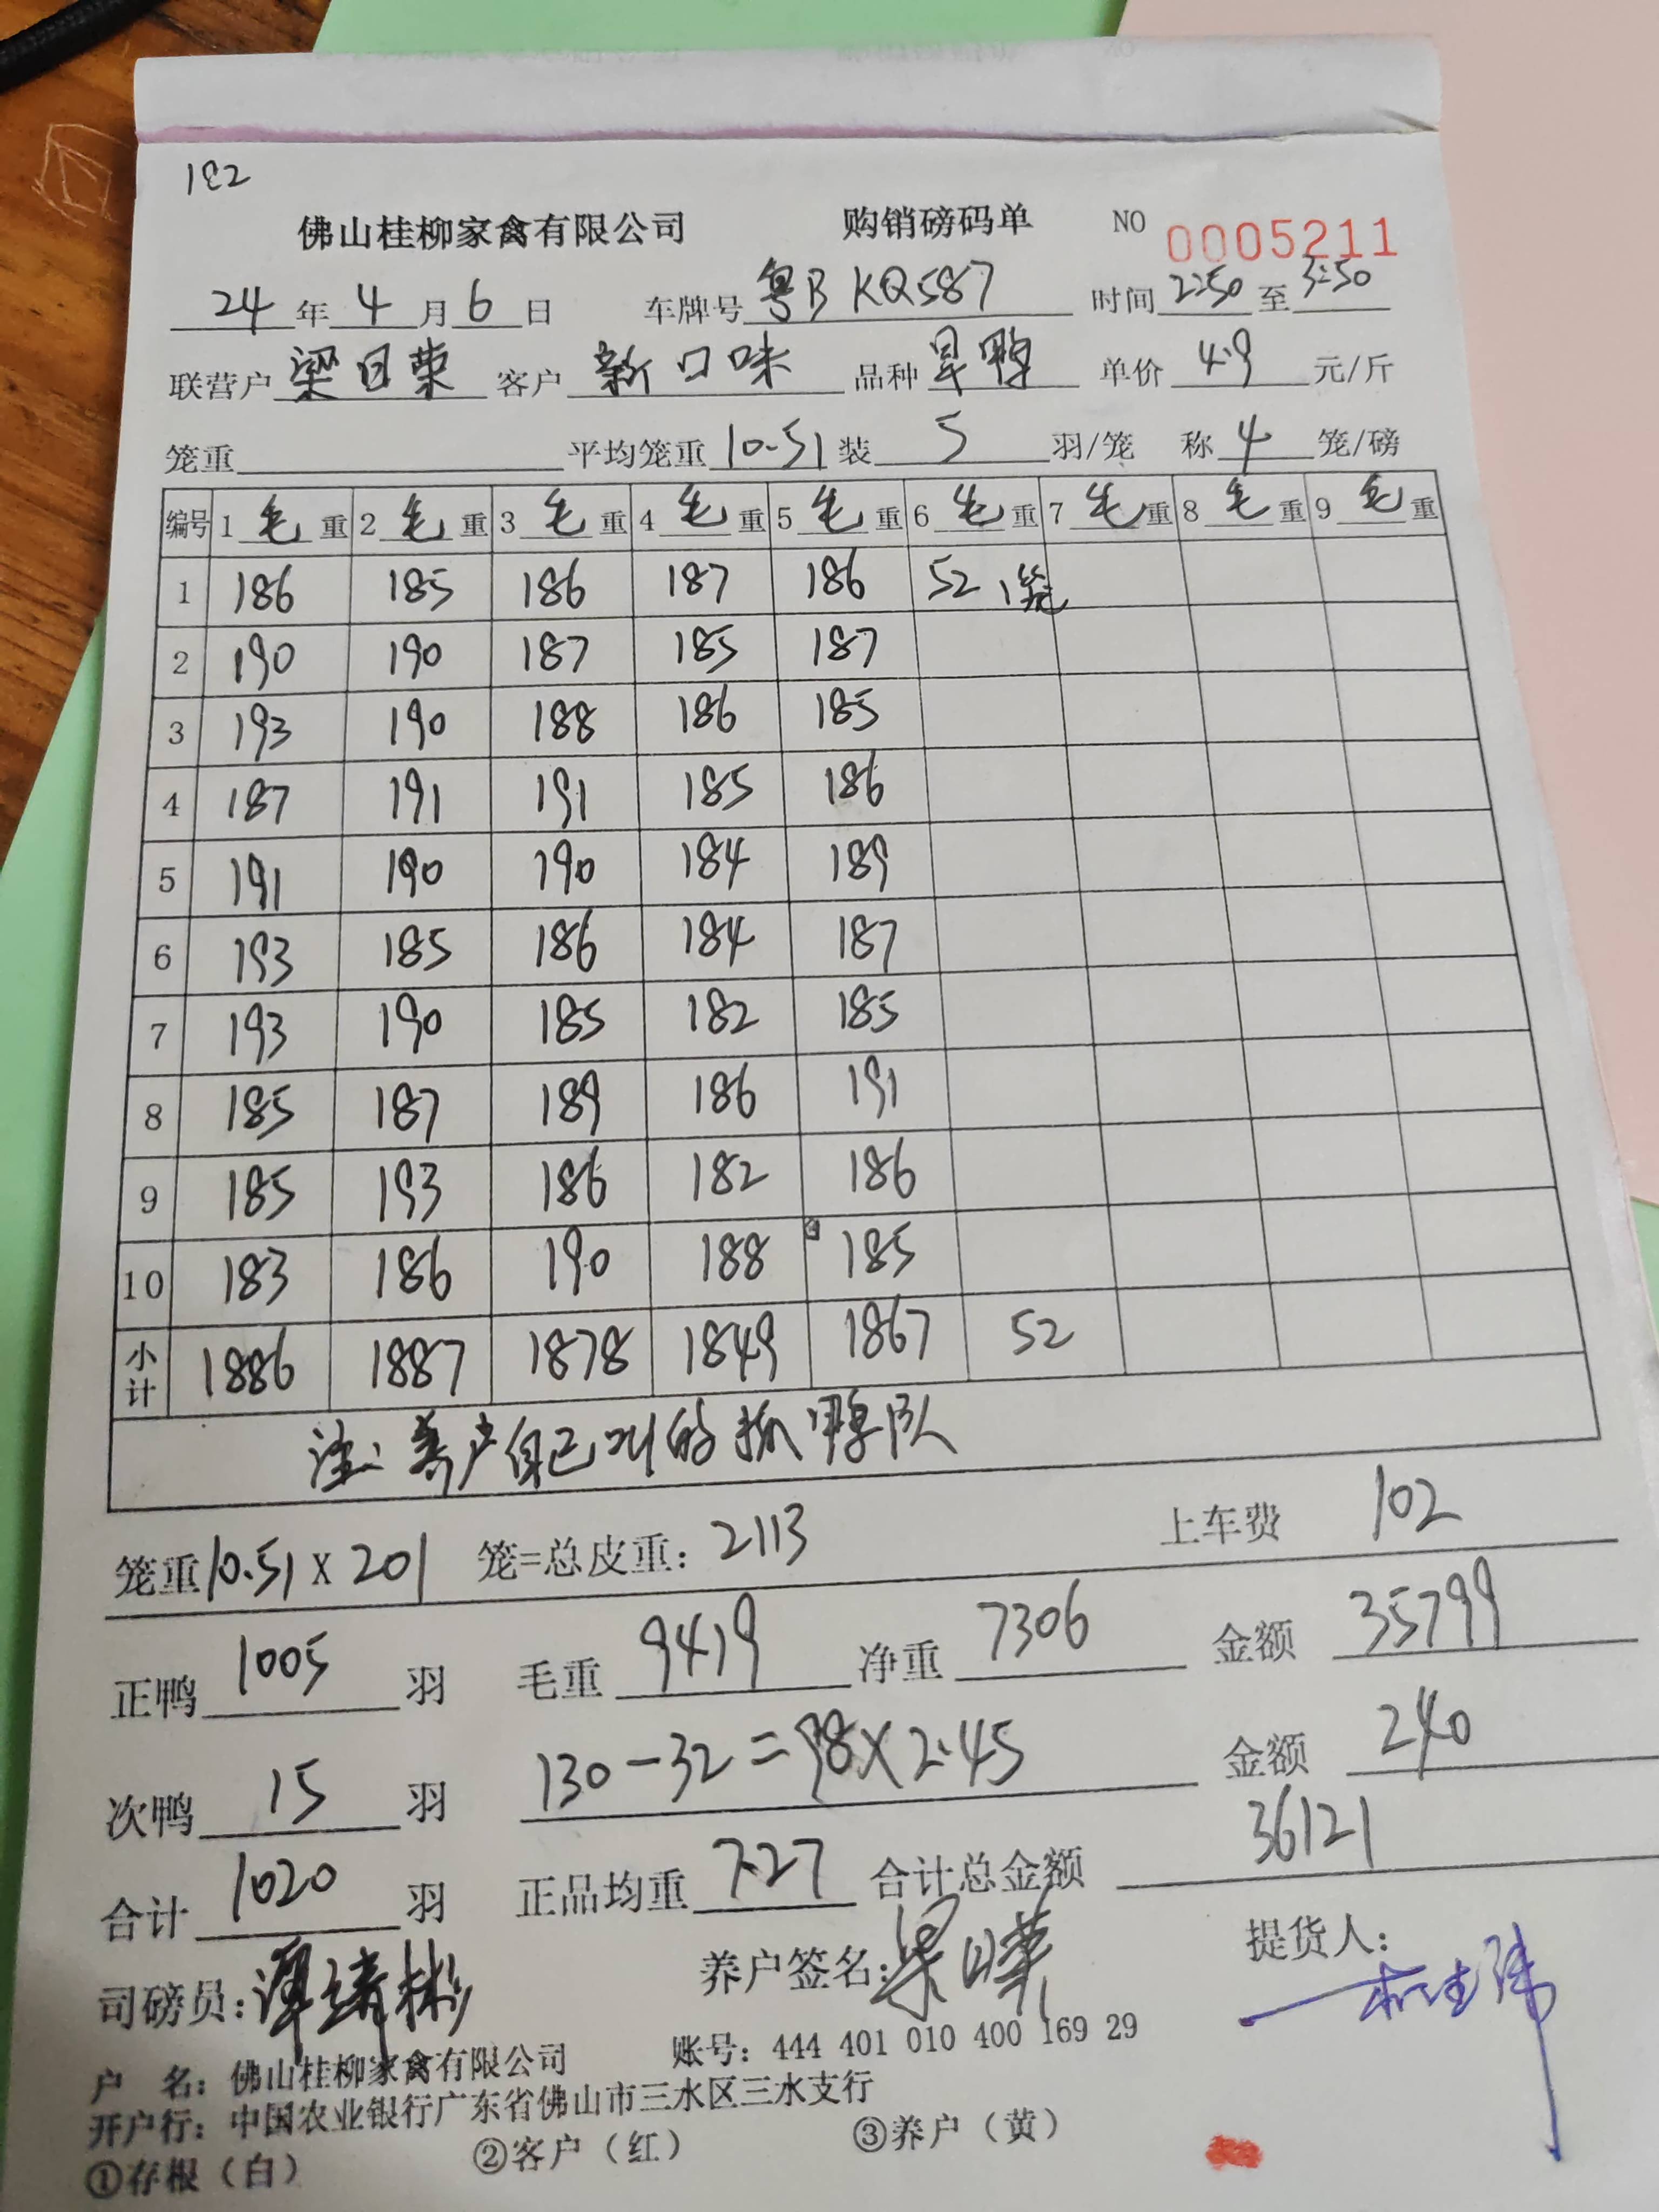 182
佛山桂柳家禽有限公司 购销磅码单 NO 0005211
24 年 4 月 6 日 车牌号 粤B KQ587 时间 2:50 至 3:50
联营户 梁日荣 客户 新口味 品种 旱鸭 单价 4.9 元/斤
笼重 平均笼重 10.51 装 5 羽/笼 称 4 笼/磅
编号 1 毛 重 2 毛 重 3 毛 重 4 毛 重 5 毛 重 6 毛 重 7 毛 重 8 毛 重 9 毛 重
1 186 185 186 187 186 52 1笼
2 190 190 187 185 187
3 193 190 188 186 185
4 187 191 191 185 186
5 191 190 190 184 189
6 193 185 186 184 187
7 193 190 185 182 185
8 185 187 189 186 191
9 185 193 186 182 186
10 183 186 190 188 185
小计 1886 1887 1878 1849 1867 52
注: 养户自己叫的抓鸭队
笼重 10.51 X 201 笼=总皮重: 2113 上车费 102
正鸭 1005 羽 毛重 9419 净重 7306 金额 35799
次鸭 15 羽 130-32=98X2.45 金额 240
合计 1020 羽 正品均重 7.27 合计总金额 36121
司磅员: 养户签名: 提货人:
户 名: 佛山桂柳家禽有限公司 账号: 444 401 010 400 169 29
开户行: 中国农业银行广东省佛山市三水区三水支行
①存根(白) ②客户(红) ③养户(黄)